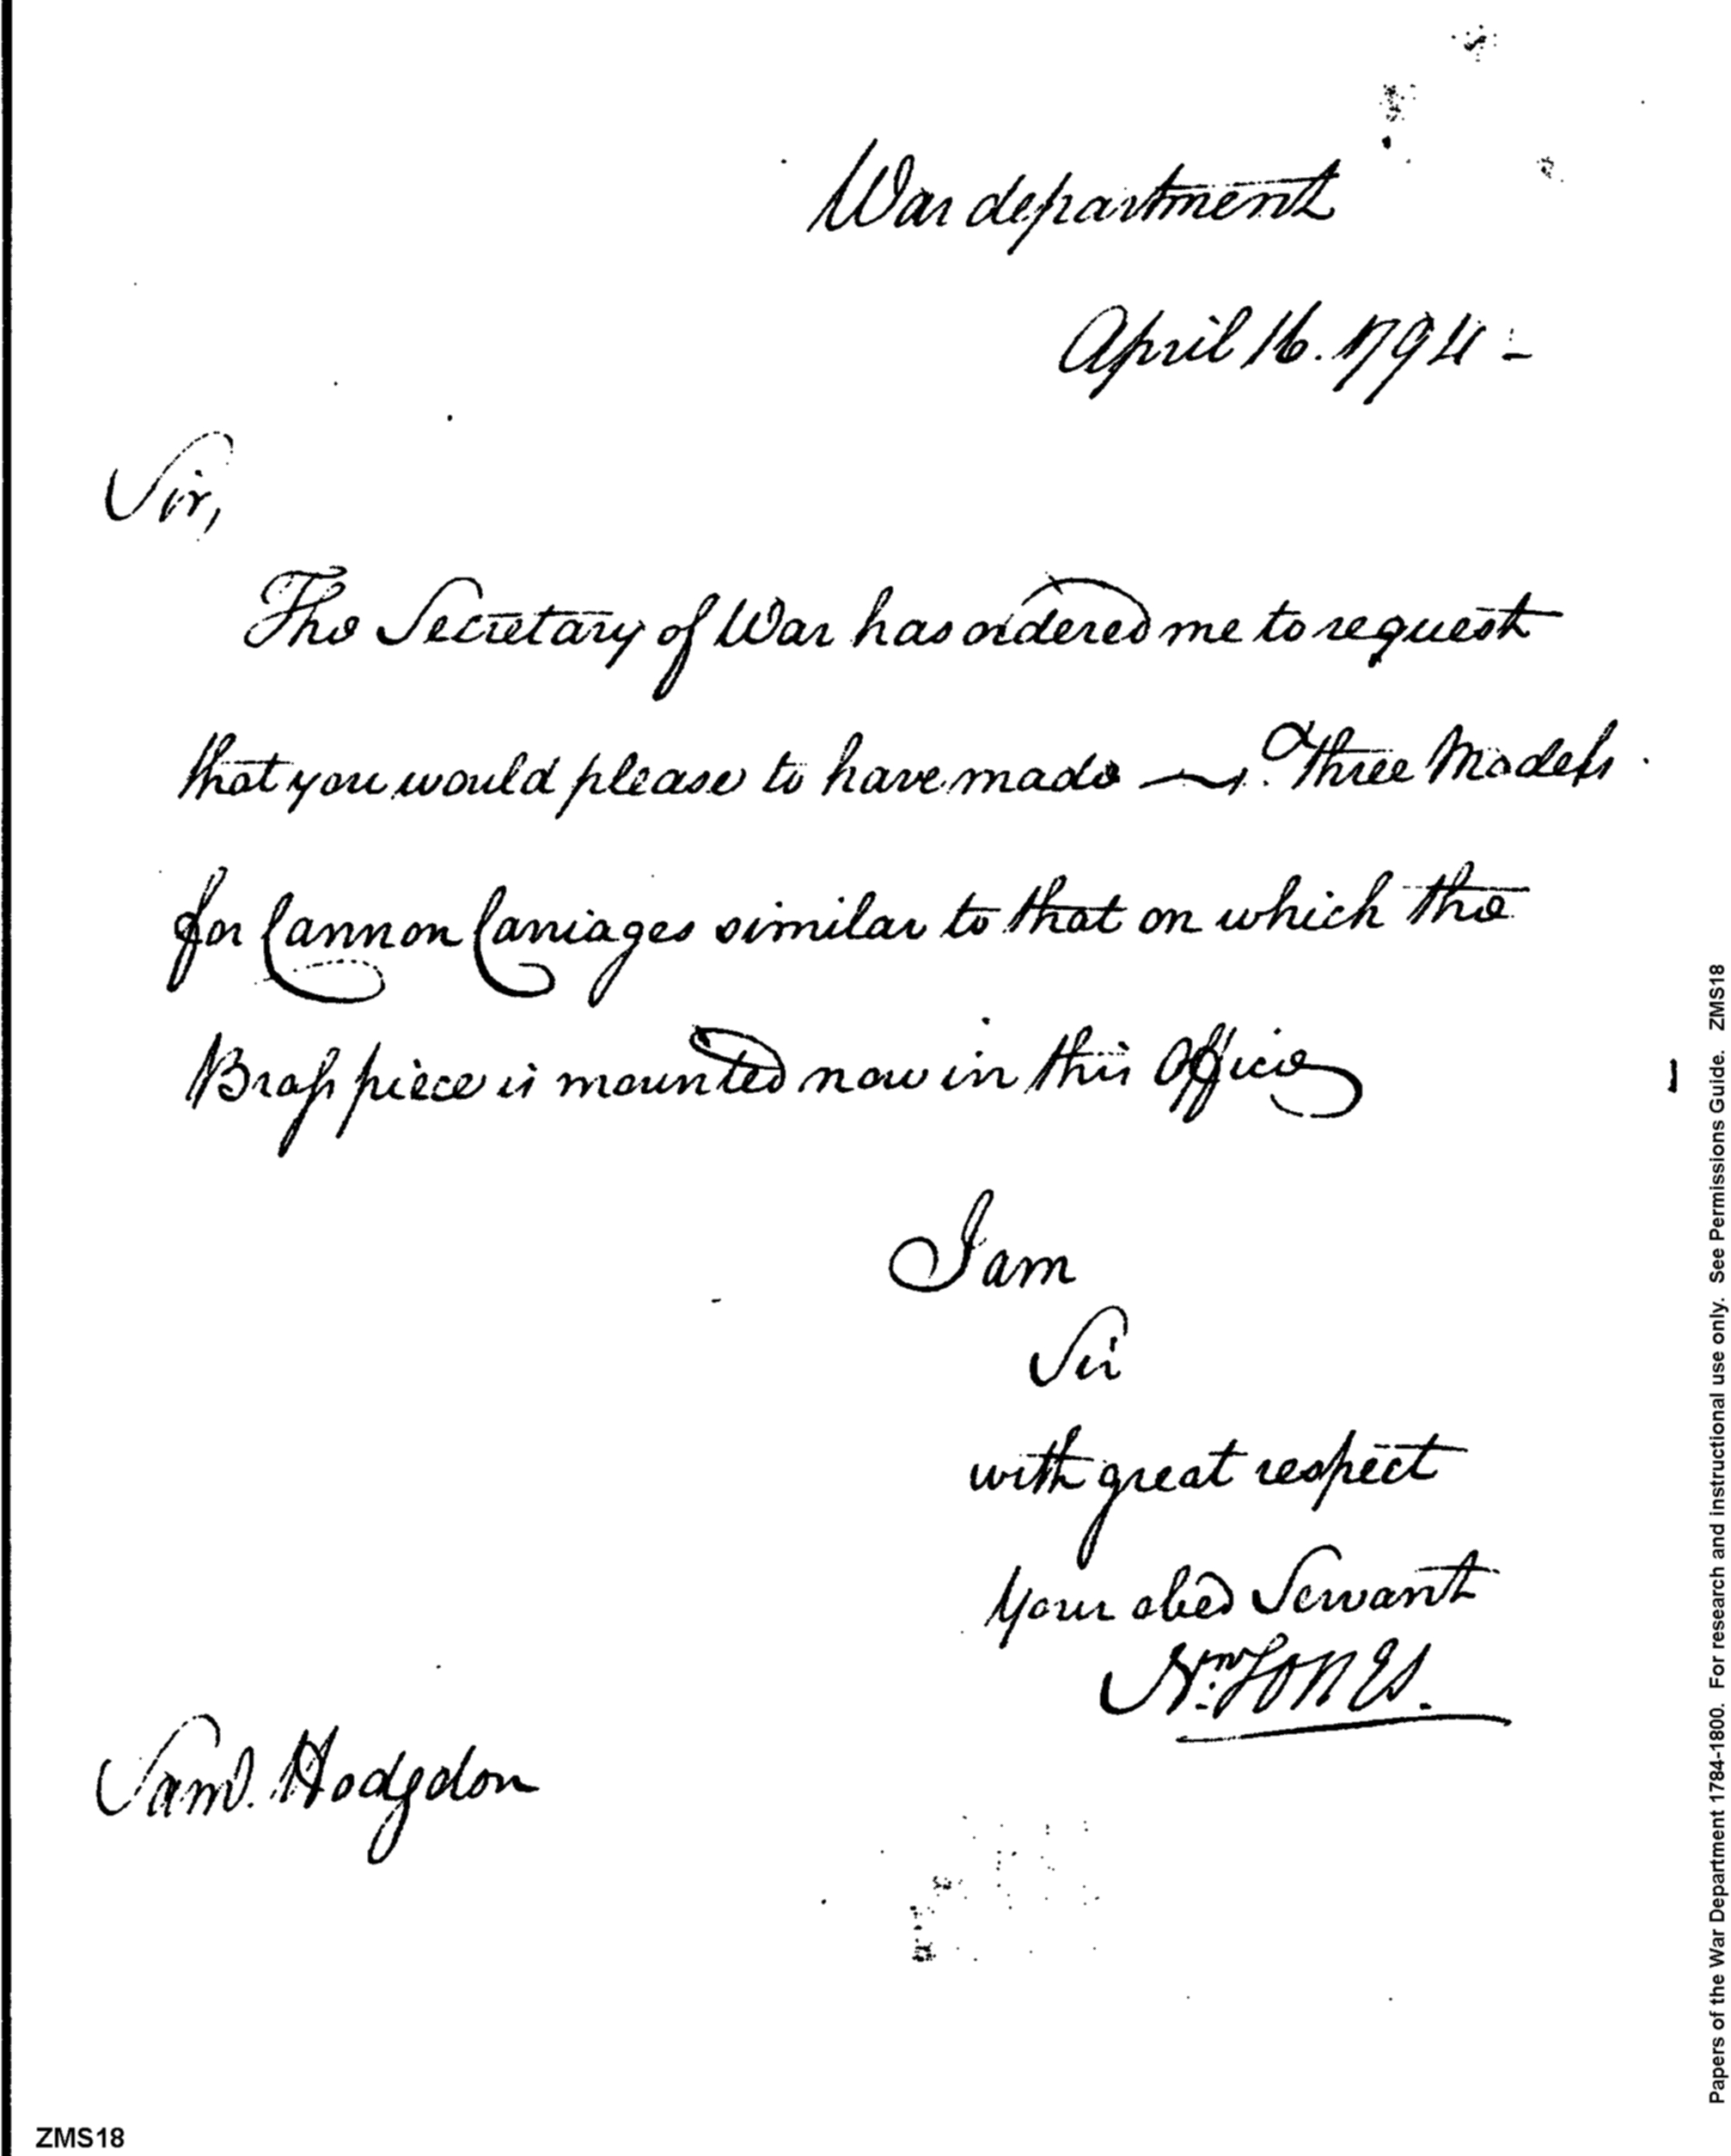 War department
April 16. 1794 -
Sir,
The Secretary of War has ordered me to request
that you would please to have made Three Models
for Cannon Carriages similar to that on which the
Brass piece is mounted now in this Office
I am
Sir
with great respect
Your obed Servant
Wm JONES.
Saml. Hodgdon
ZMS18
Papers of the War Department 1784-1800. For research and instructional use only. See Permissions Guide. ZMS18